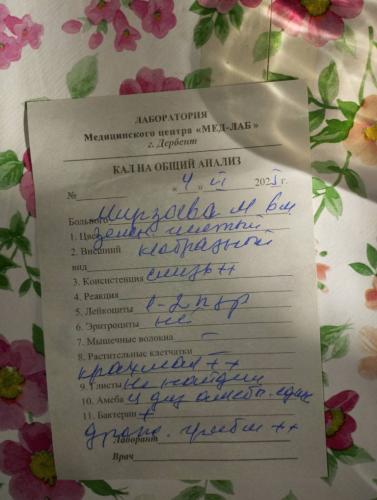 ЛАБОРАТОРИЯ
Медицинского центра «МЕД-ЛАБ»
г. Дербент
КАЛ НА ОБЩИЙ АНАЛИЗ
№ «4» VI 2025 г.
Больного Мирзоева М 6м
1. Цвет зелен цветный
2. Внешний кообразный
вид
3. Консистенция слизь ++
4. Реакция
5. Лейкоциты 1-2 п/зр
6. Эритроциты нет
7. Мышечные волокна –
8. Растительные клетчатки –
крахмал ++
9. Глисты не найдены
10. Амеба
11. Бактерии +
дрож. грибы ++
Лаборант
Врач